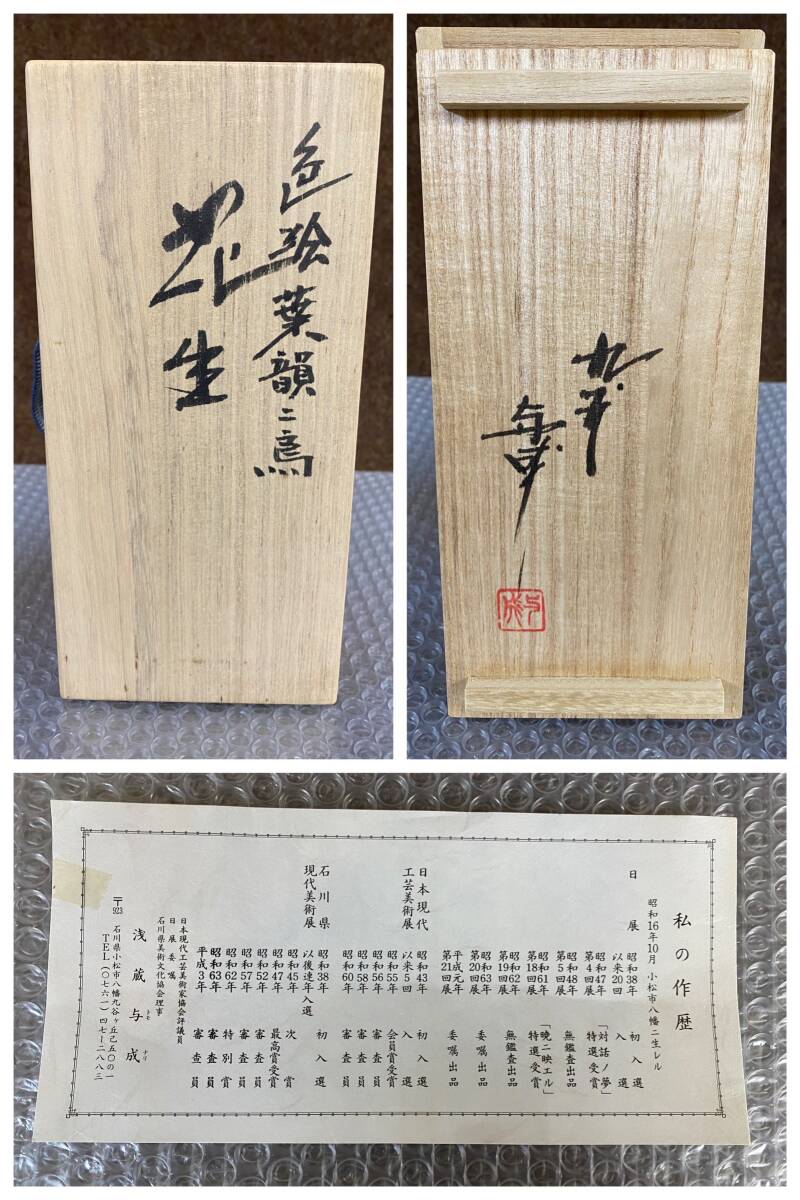 色絵葉韻ニ鳥
花生
九谷
与成
与成
私の作歴
昭和16年10月 小松市八幡ニ生レル
日展 昭和38年 初入選
以来20回 入選
昭和47年
第4回展 「対話ノ夢」
特選受賞
昭和48年
第5回展 無鑑査出品
昭和61年
第18回展 「晩ニ映エル」
特選受賞
昭和62年
第19回展 無鑑査出品
昭和63年
第20回展 委嘱出品
平成元年
第21回展 委嘱出品
日本現代
工芸美術展 昭和43年 初入選
以来5回 入選
昭和55年 会員賞受賞
昭和56年 審査員
昭和58年 審査員
昭和60年 審査員
石川県
現代美術展 昭和38年 初入選
以後連年入選
昭和45年 次賞
昭和47年 最高賞受賞
昭和52年 審査員
昭和57年 審査員
昭和62年 特別賞
昭和63年 審査員
平成3年 審査員
日本現代工芸美術家協会評議員
日展委嘱
石川県美術文化協会理事
浅蔵与成
トモ ナリ
〒923 石川県小松市八幡九谷ヶ丘己五〇の一
TEL(〇七六一)四七ー二八八三